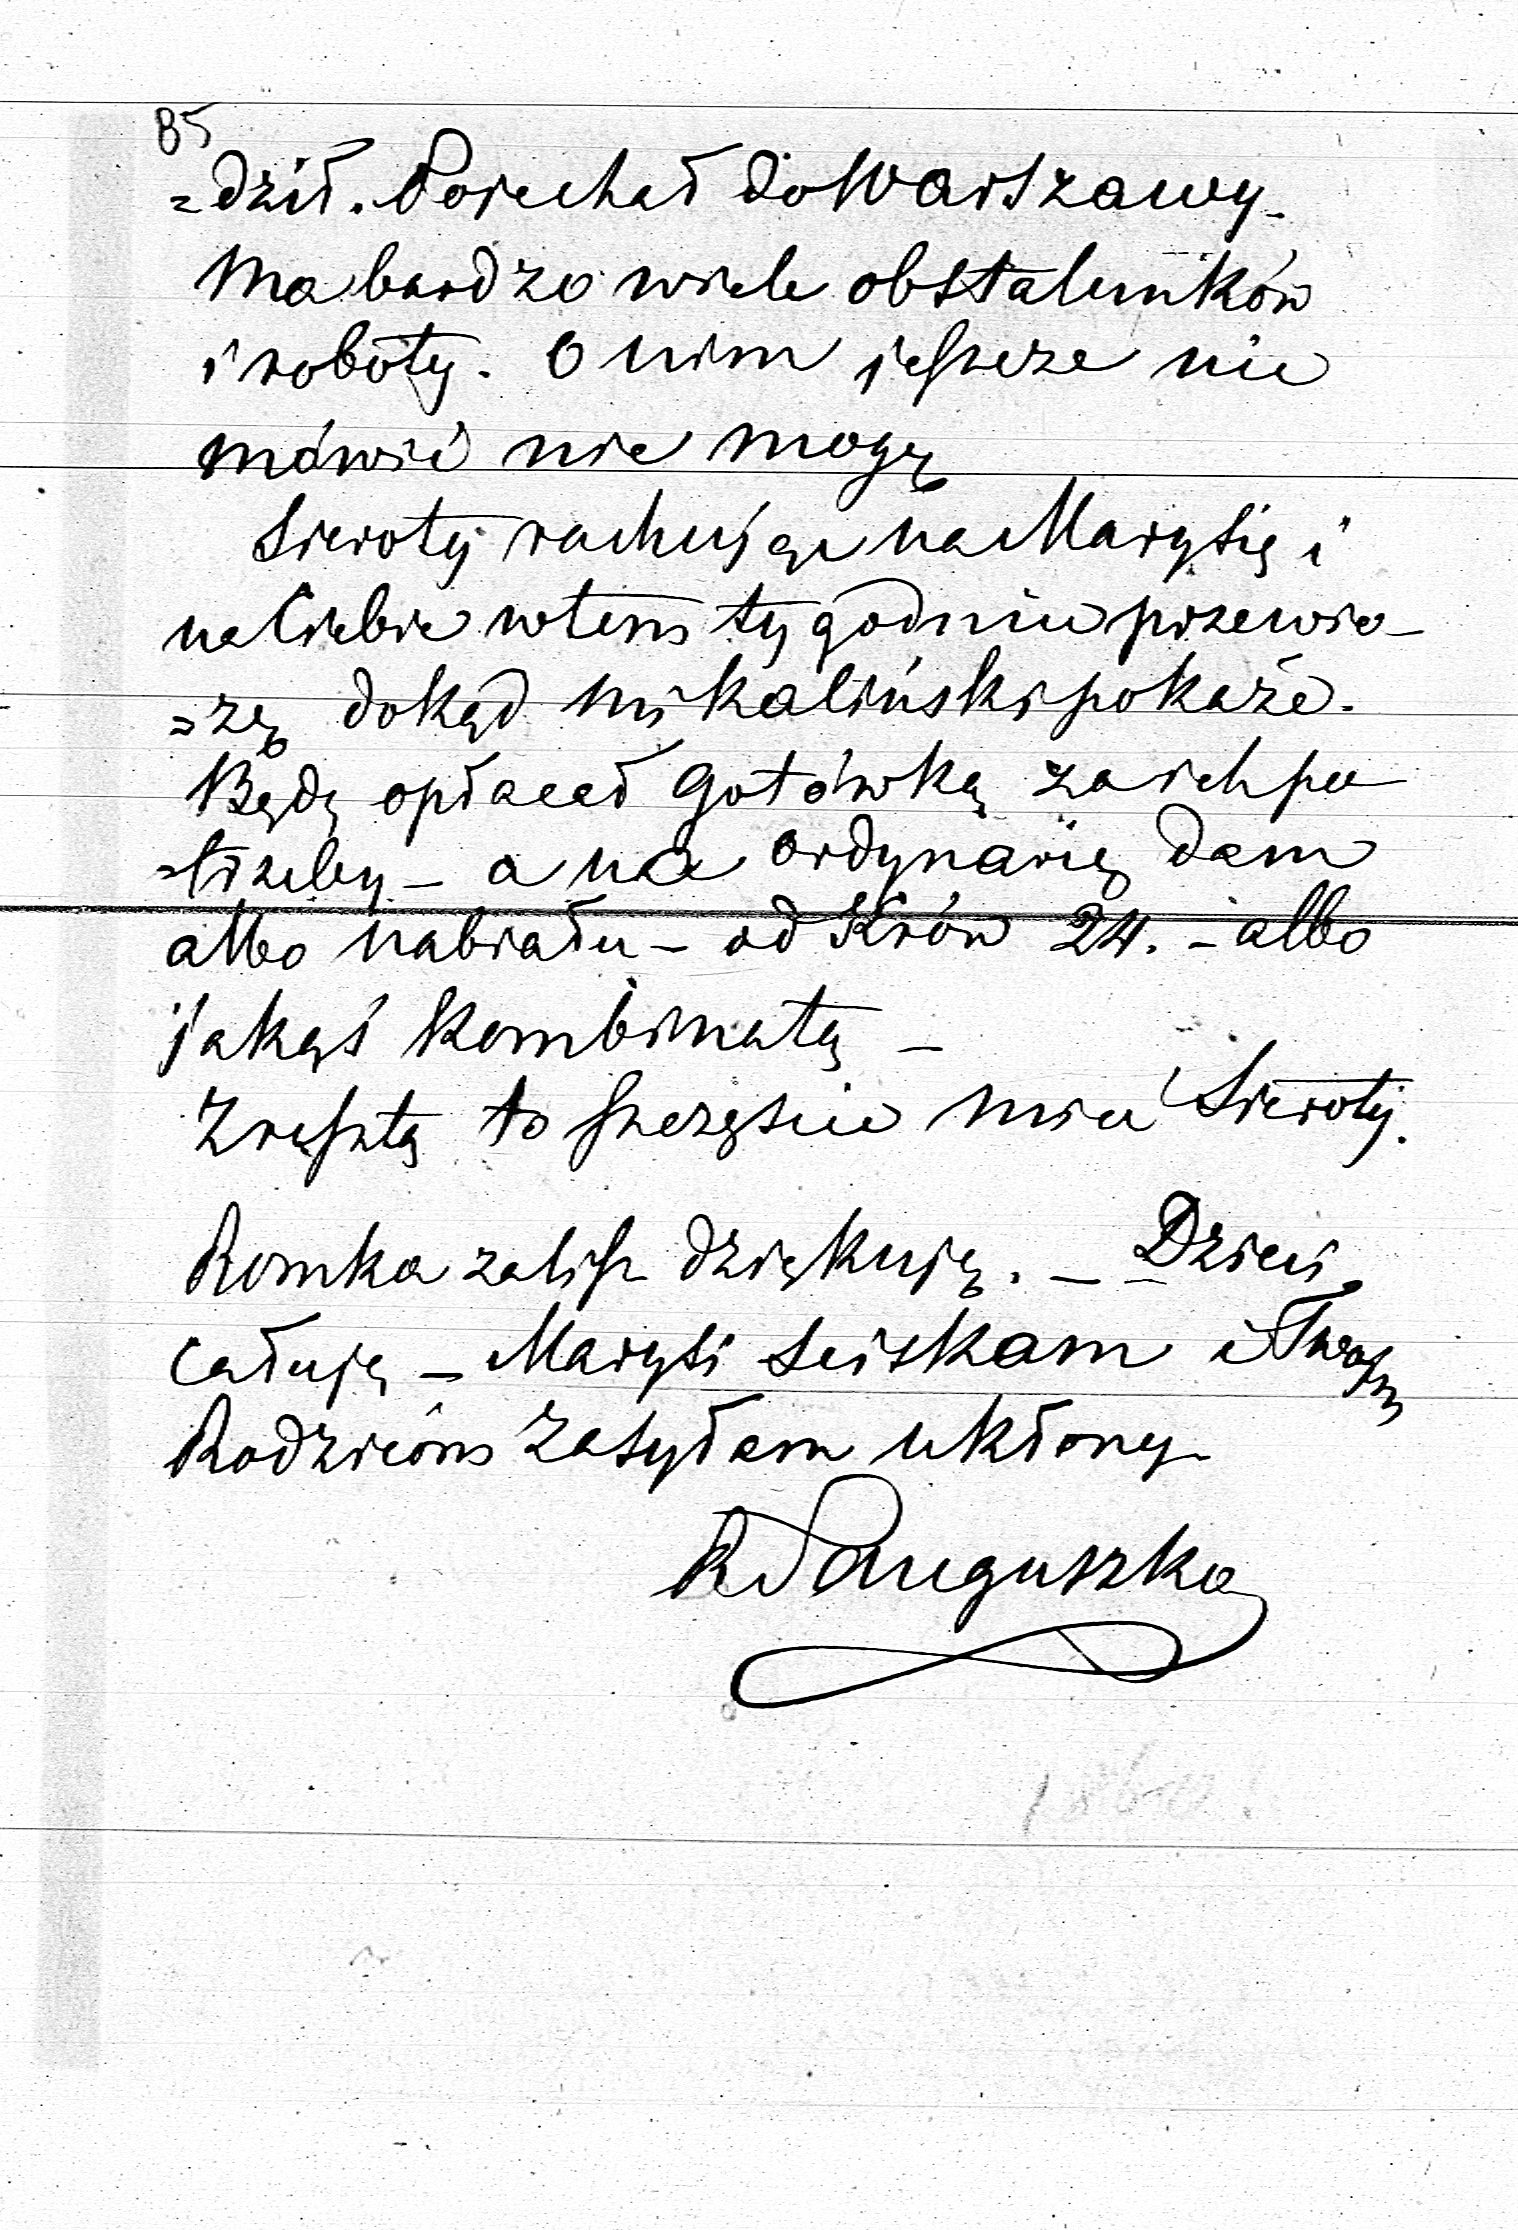 85
=dził. Pojechał do Warszawy_
Ma bardzo wiele obstalunków
i roboty. O nim jeszcze nic
mówić nie mogę
Sieroty rachując na Marysię i
na Ciebie w tem tygodniu przewio_
=zę dokąd mi Kaliński pokaże.
Będę opłacał gotówką za ich po
=trzeby _ a na ordynarię dam
albo nabiału _ od Krów 24. _ albo
jakąś kombinatę _
Zresztą to szczęście mieć Sieroty.
Romka za list dziękuję. _ Dzieci
całuję _ Marysi sciskam i Twoim
Rodzicom zasyłam ukłony_
R Sanguszko